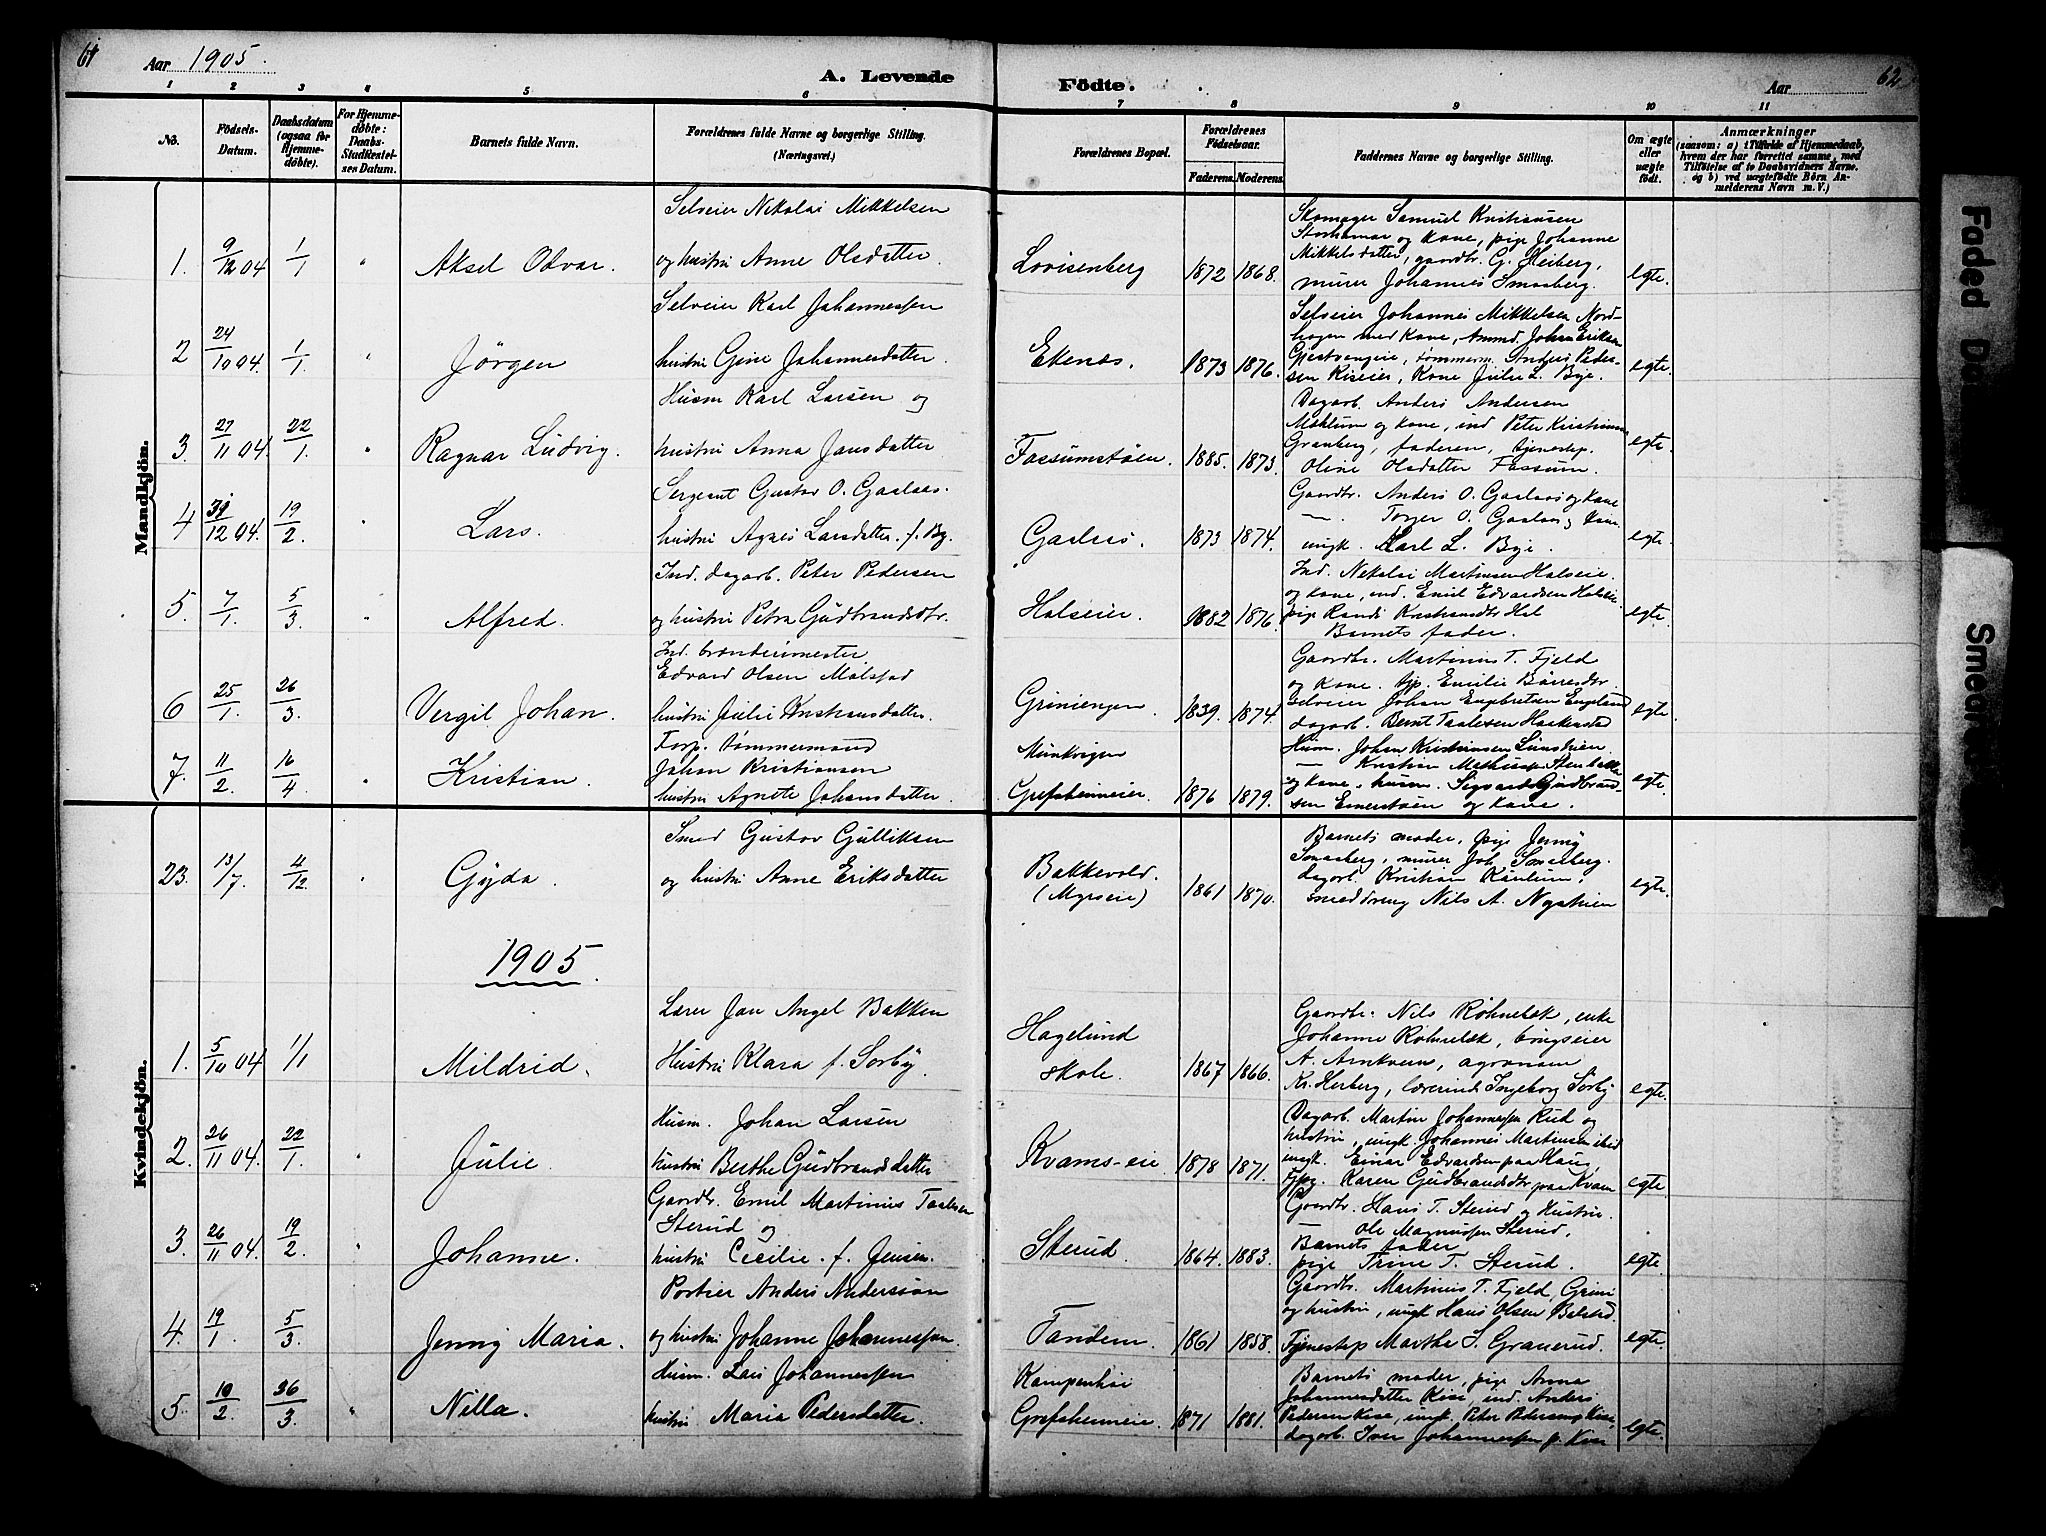 61
Aar 1905.
A. Levende
Födte.
Aar
62
1 2 3 4 5 6 7 8 9 10 11
No.
Födsels-
Datum.
Daabsdatum
(ogsaa for
Hjemme-
döbte).
For Hjemme-
döbte:
Daabs-
Stadfæstel-
ses Datum.
Barnets fulde Navn.
Forældrenes fulde Navne og borgerlige Stilling.
(Næringsvei.)
Forældrenes Bopæl.
Forældrenes
Födselsaar.
Faderens. Moderens.
Faddernes Navne og borgerlige Stilling.
Om ægte
eller
uægte
födt.
Anmærkninger
(saasom: a) i Tilfælde af Hjemmedaab,
hvem der har forrettet samme, med
Tilföielse af to Daabsvidners Navne.
og b) ved uægtefödte Börn An-
melderens Navn m. V.)
Mandkjön.
1. 9/12 04 1/1 " Aksel Odvar.
Selveier Nikolai Mikkelsen
og hustru Anne Olsdatter.
Lovisenberg 1872 1868.
Skomager Samuel Kristiansen
Storhamar og kone, pige Johanne
Mikkelsdatter, gaardbr. G. Heiberg,
murer Johannes Smaaberg.
egte.
2 24/10 04. 1/1 " Jörgen
Selveier Karl Johannessen
hustru Gine Johannesdatter.
Ekenæs. 1873 1876.
Selveier Johannes Mikkelsen Nord-
hagen med kone, Johan Eriksen
tömmerm. Anders Peder-
sen Kiseier, Kone Julie L. Bye.
egte.
3. 27/11 04. 22/1 " Ragnar Ludvig.
Husm Karl Larsen og
hustru Anna Jansdatter
Fossumstöen. 1885. 1873.
Dagarb. Anders Andersen
Moklum og kone, ind Peter Kristiansen
Granberg, faderen, tjenestep.
Oline Olsdatter Fossum.
egte.
4 31/12 04. 19/2 " Lars.
Sergeant Gustav O. Gaalaas.
hustru Agnes Larsdatter. f. By.
Gaalaas. 1873 1874.
Gaardbr. Anders O. Gaalaas og kone
— Torger O. Gaalaas og kone
ungk. Karl L. Bye.
egte.
5. 7/1. 5/3 " Alfred.
Ind. dagarb. Peter Pedersen
og hustru Petra Gudbrandsdtr.
Halseier. 1882 1876.
Ind. Nikolai Martinsen Halseie.
og kone, ind. Emil Edvardsen Halseie.
pige Randi Kristiansdtr Hal
Barnets fader.
egte.
6 25/1. 26/3 Vergil Johan.
Ind. brænderimester
Edvard Olsen Molstad
hustru Julie Kristiansdatter.
Griniengen 1839. 1874.
Gaardbr. Martinius T. Fjeld
og kone. tjp. Emilie Börresdtr.
selveier Johan Engebretsen Engelund
dagarb. Bernt Taalesen Haakenstad
egte.
7. 11/2. 16/4 " Kristian.
Forp. tömmermand
Johan Kristiansen
hustru Agnete Johansdatter.
Munkvigen
Grefsheimeier. 1876 1879.
Husm. Johan Kristiansen Limstuen
— Kristian Stenbakke
og kone, husm. Sigvard Gudbrand-
sen Emerstöen og kone.
egte.
Kvindekjön.
23. 13/7. 4/12 " Gyda.
Smed Gustav Gulliksen
og hustru Anne Eriksdatter
Bakkevold.
(Myrseie) 1861 1870.
Barnets moder, pige Jenny
Smaaberg, murer Joh. Smaaberg.
dagarb. Kristian Kaulum,
smeddreng Nils A. Nystuen
egte.
1905.
1. 5/10 04 1/1 Mildrid.
Lærer Jan Angel Bakken
Hustru Klara f. Sörby.
Hagelund
skole. 1867 1866.
Gaardbr. Nils Röhnebæk, enke
Johanne Röhnebæk, brugseier
A. Arnkværn, agronom
Kr. Herberg, lærerinde Ingeborg Sörby
egte.
2. 26/11 04. 22/1. " Julie.
Husm. Johan Larsen
hustru Berthe Gudbrandsdatter
Kvams-eie 1878 1871.
Dagarb. Martin Johannessen Rud og
hustru, ungk. Johannes Martinsen ibid
ungk. Einar Edvardsen paa Haug,
Tjpig. Karen Gudbrandsdtr paa Kvam
egte.
3. 26/11 04. 19/2. " Johanne.
Gaardbr. Emil Martinius Taalesen
Sterud og
hustru Cecilie. f. Jensen.
Sterud. 1864. 1883.
Gaardbr. Hans T. Sterud og Hustru.
— Ole Magnussen Sterud,
Barnets fader
pige Trine T. Sterud.
egte.
4. 19/1. 5/3. Jenny Maria.
Portier Anders Anderssön
og hustru Johanne Johannessen.
Tandem. 1861 1858.
Gaardbr. Martinius T. Fjeld, Grini
og hustru, ungk Hans Olsen Bolstad.
Tjenestep Marthe S. Granerud.
egte.
5. 10/2. 36/3. " Nilla.
Husm. Lars Johannessen
hustru Maria Pedersdatter.
Kampenhoi
Grefsheimeie. 1871 1881.
Barnets moder, pige Anna
Johannesdatter Kise, ind. Anders
Pedersen Kise, ungk. Peter Pedersen Kise,
dagarb. Iver Johannessen p. Kise
egte.
Faded D
Smeared